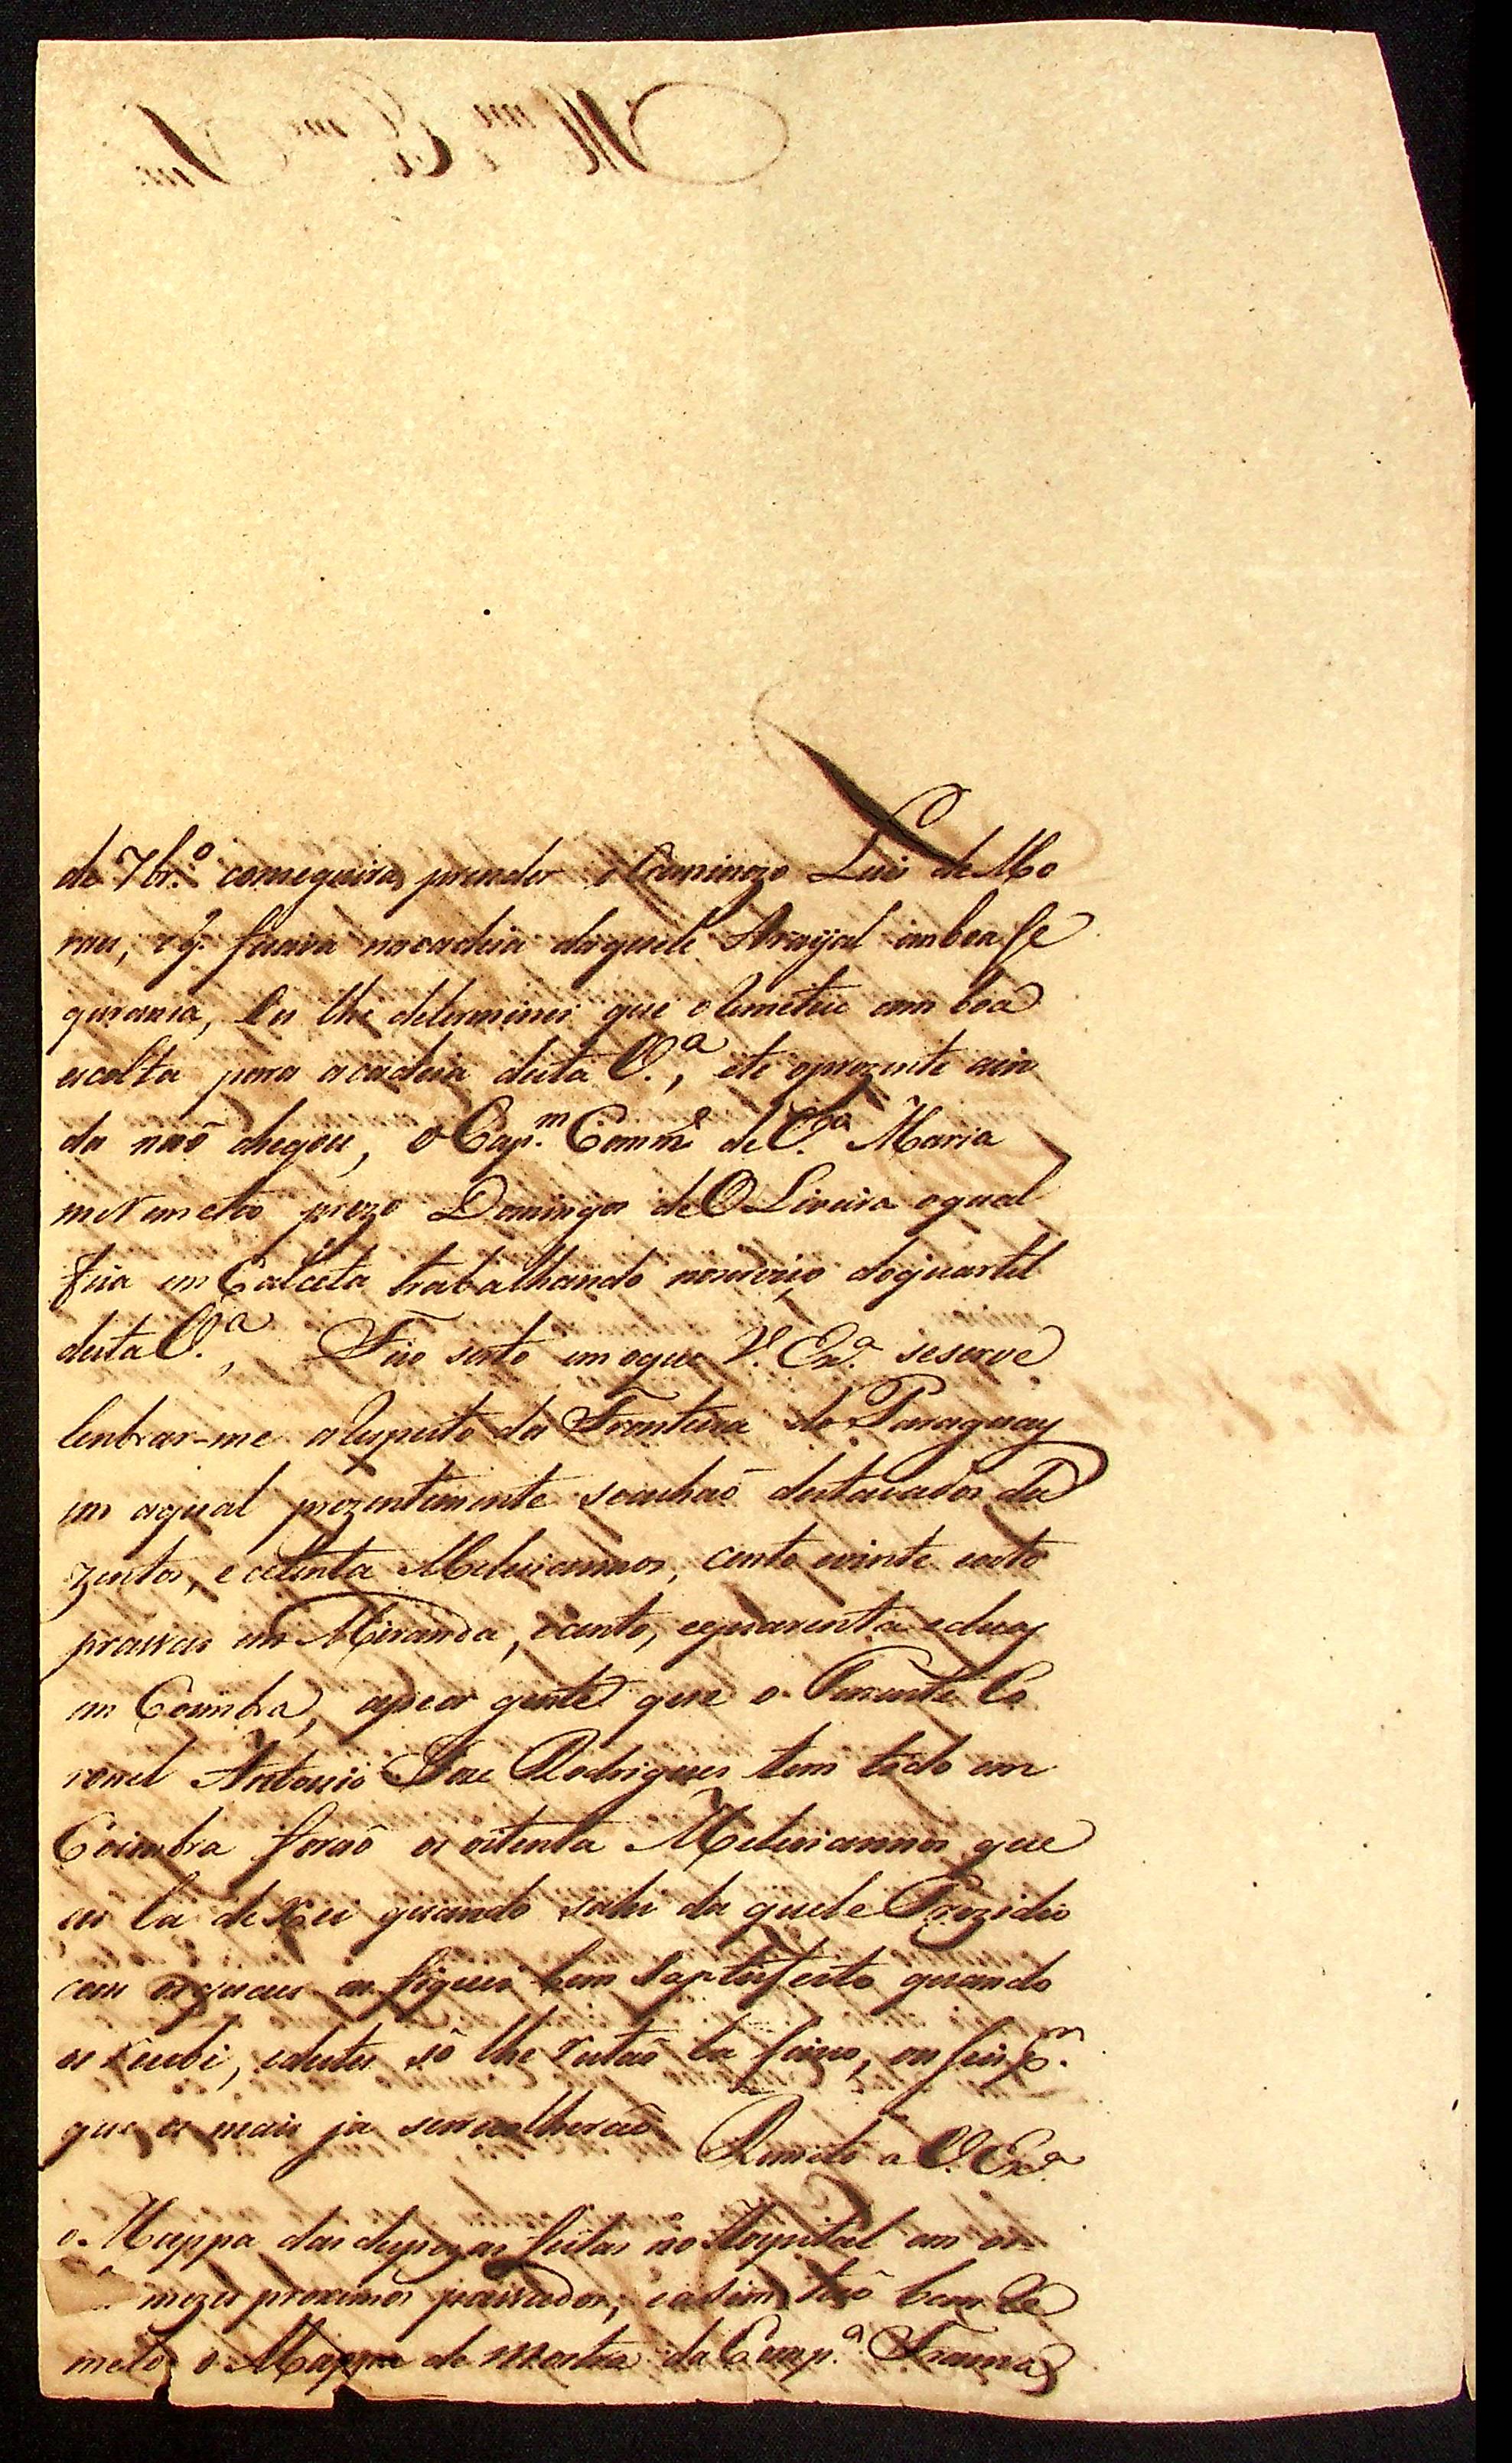 de 7br.º conseguira, prender o Criminozo Luis de Mo
raes, e q. ficava na cadeia daquele Arraýal em boa se
guransa, Eu lhe determinei que o remetese com boa
escolta para a cadeia desta V.ª, ete oprezente ain
da naõ chegou, o Cap.m Comm.e de V.ª Maria
me Remeteo prezo Domingos de OLiveira o qual
fica em Calceta trabalhando noserviço doquartel
desta V.ª, Fico serto em oque V. Ex.ª seserve
lembrar-me a Respeito da Fronteira do Paraguay
em aqual prezentemente seachaõ destacados du
zentos, e setenta Melicianos, cento evinte eoito
prassas em Miranda, e cento, equarenta eduas
em Coimbra, apeor gente que o Tenente Co
ronel Antonio Joze Rodrigues tem tido em
Coimbra foraõ os oitenta Melicianos que
eu la deXei quando sahi da quele Prezidio
com os quaes eu fiquei bem Saptisfeito quando
os recebi, e destes só lhe restaõ la sinco, ou seis
que os mais ja serecolheraõ Remeto a V. Ex.ª
o Mappa das despezas feitas no Hospital em os
mezes proximos paissados, e asim taõ bem Re
meto o Mappa de mostra da Comp.ª Franca